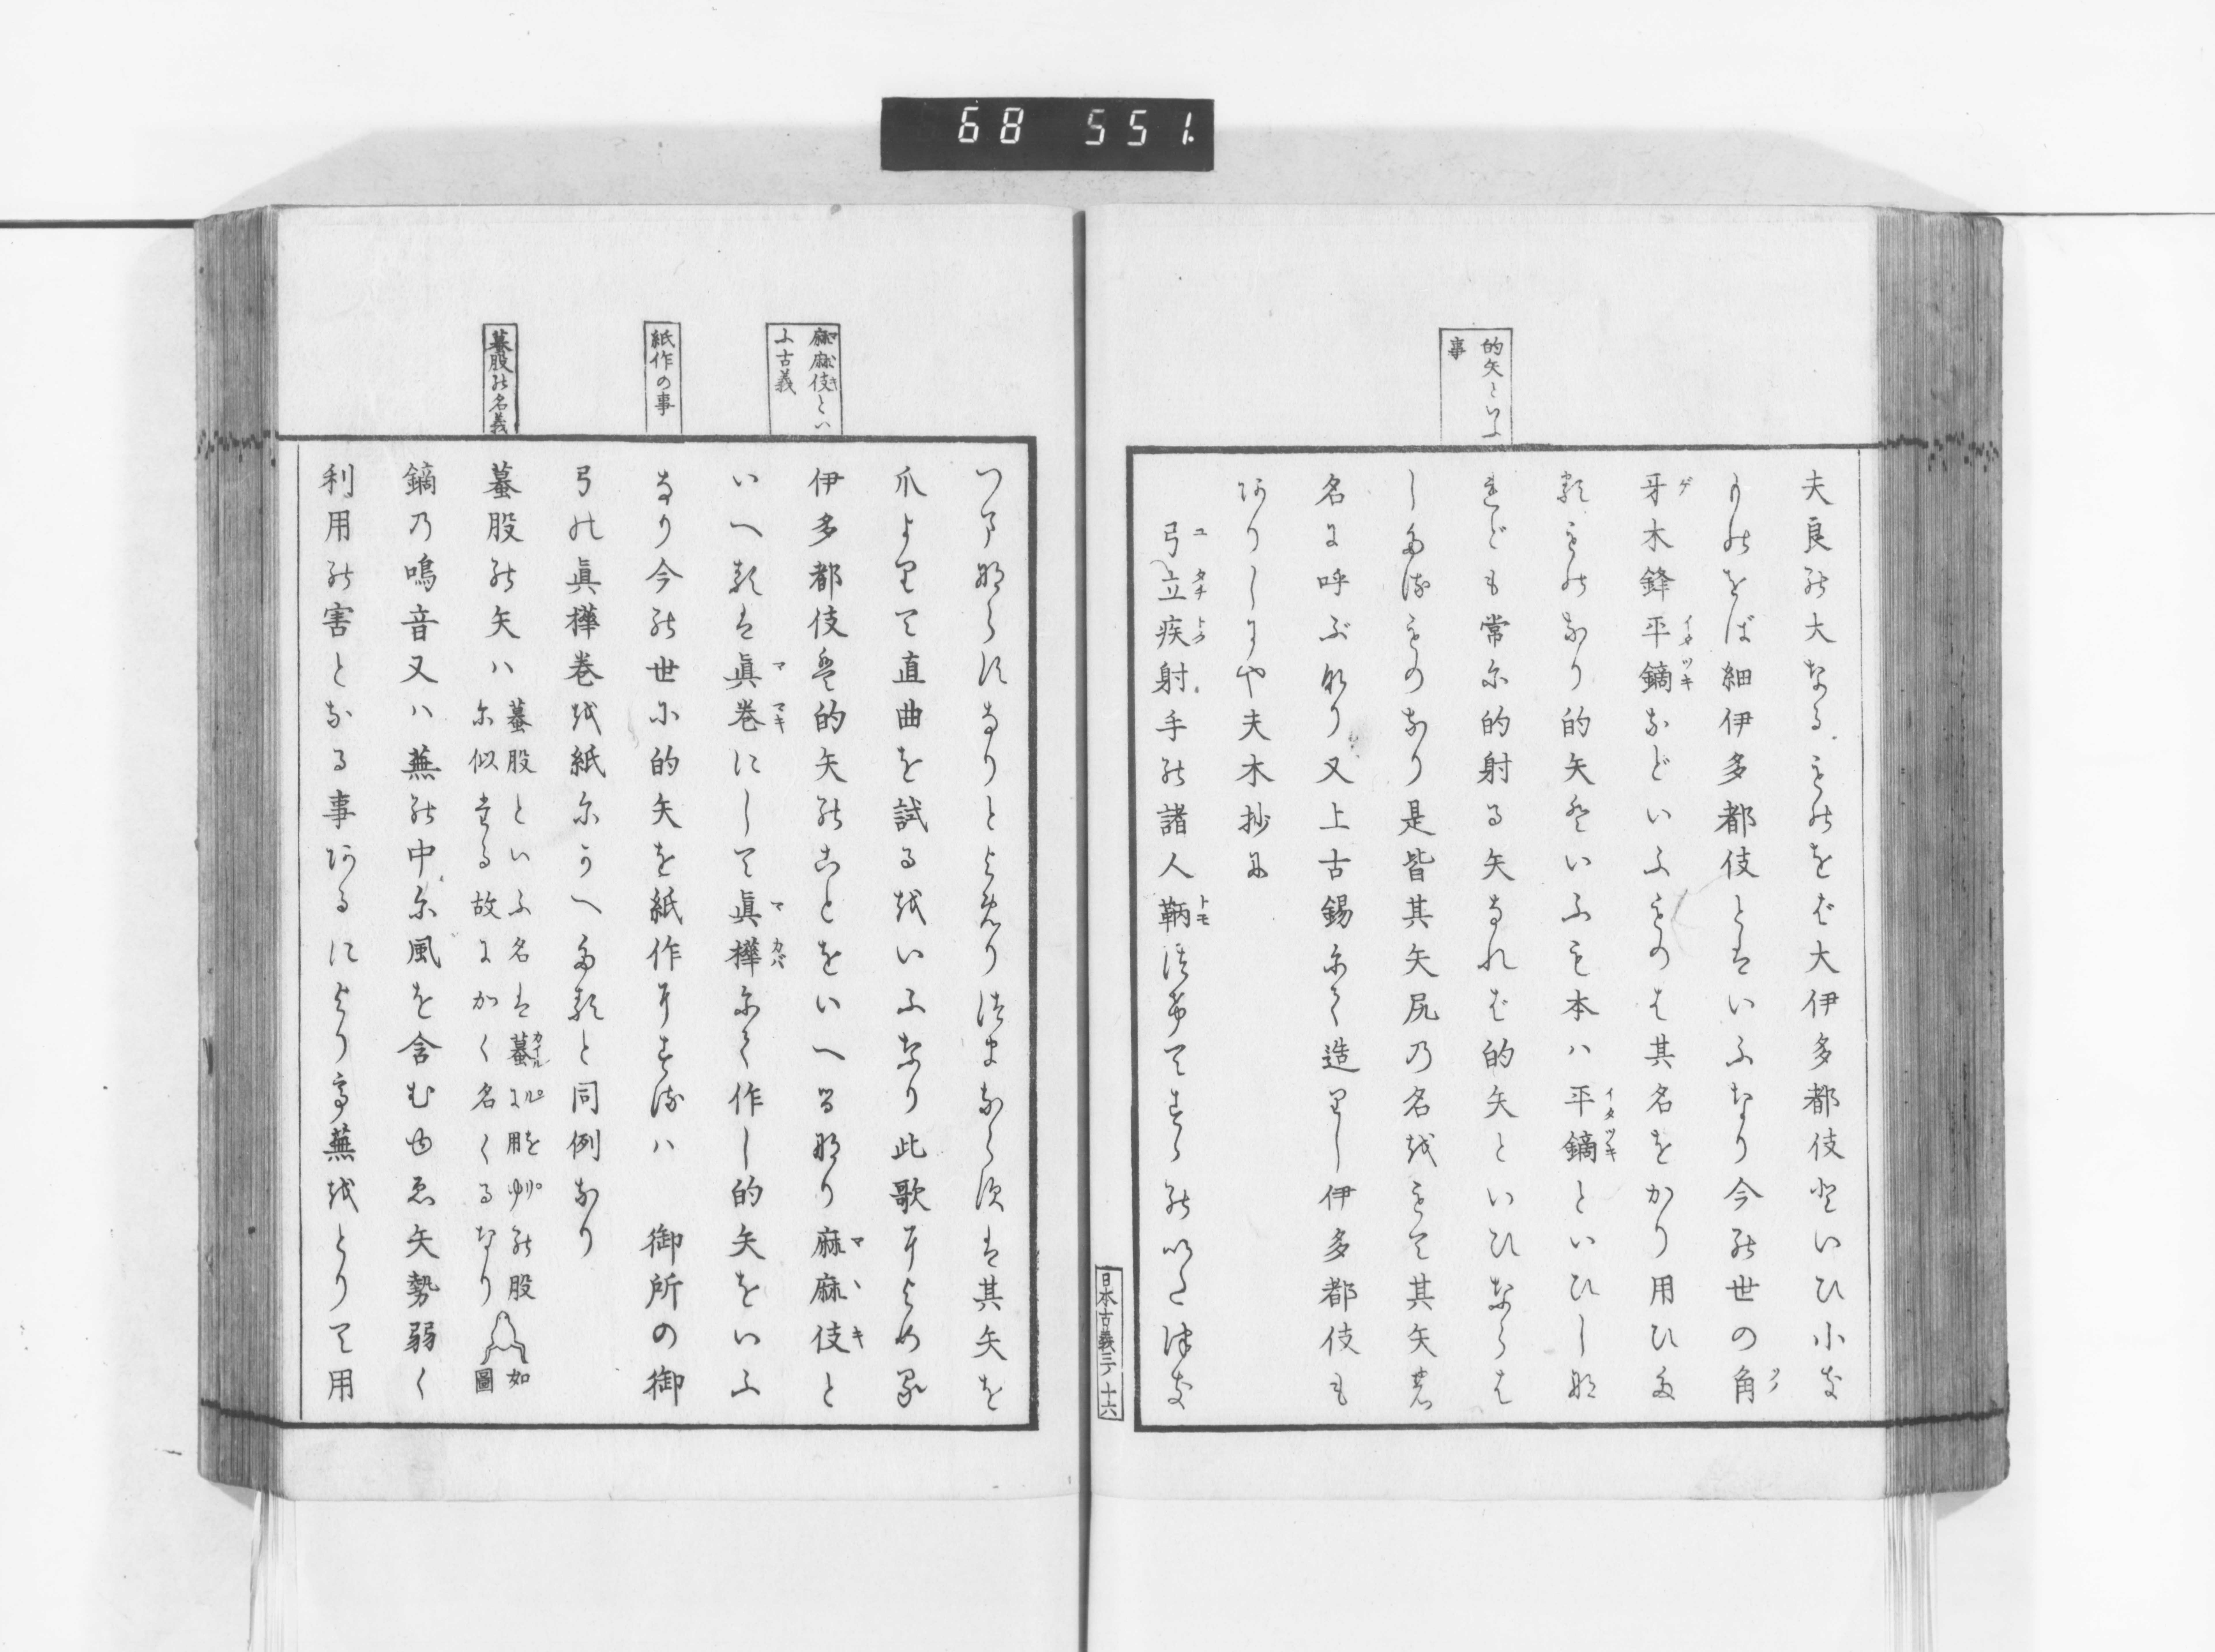 68 551.
的矢といふ
事
夫良能大なるものをば大伊多都伎といひ小な
りのをば細伊多都伎とはいふなり今能世の角
牙木鋒平鏑などいふものは其名をかり用ひた
るものなり的矢といふも本ハ平鏑といひしな
れども常に的射る矢なれば的矢といひならは
したるものなり是皆其矢尻乃名をもて其矢の
名に呼ぶなり又上古錫にて造りし伊多都伎も
ありしにや夫木抄に
弓立疾射手能諸人鞆
日本古義三ノ十六
麻麻伎とい
ふ古義
紙作の事
蟇股能名義
其矢を
爪よりて直曲を試るをいふなり此歌によめる
伊多都伎は的矢のことをいへるなり麻麻伎と
いへるは眞巻にして眞樺にて作し的矢をいふ
なり今能世に的矢を紙作にするハ 御所の御
弓の眞樺巻を紙にかへたると同例なり
蟇股能矢ハ
蟇股といふ名は蟇能股如
に似たる故にかく名くるなり圖
鏑乃鳴音又ハ蕪能中に風を含むゆゑ矢勢弱く
利用能害となる事あるにより蕪をとりて用